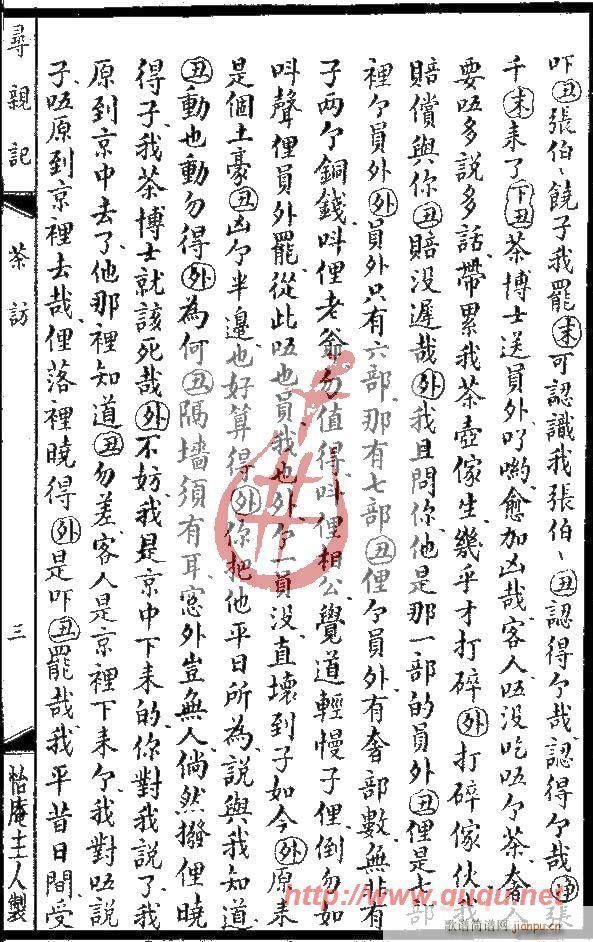 吓(丑)張伯〻饒子我罷(末)可認識我張伯〻(丑)認得个哉認得个哉(淨)張
千(末)来了(下)(丑)茶博士送員外吖喲愈加凶哉客人唔没吃唔个茶奢人
要唔多説多話帶累我茶壺傢生幾乎才打碎(外)打碎傢伙我
賠償與你(丑)賠没遲哉(外)我且問你他是那一部的員外(丑)俚是七部
裡个員外(外)員外只有六部那有七部(丑)俚个員外有奢部數無非有
子两个銅錢呌俚老爺勿值得呌俚相公覺道輕幔子俚倒勿如
呌聲俚員外罷從此唔也員我也外个一員没直壞到子如今(外)原来
是個土豪(丑)凶个半邊也好算得(外)你把他平日所為説與我知道
(丑)動也動勿得(外)為何(丑)隔墻須有耳窓外豈無人倘然撥俚曉
得子我茶博士就該死哉(外)不妨我是京中下来的你對我説了我
原到京中去了他那裡知道(丑)勿差客人是京裡下来个我對唔説
子唔原到京裡去哉俚落裡曉得(外)是吓(丑)罷哉我平昔日間受
尋親記
茶訪
三
怡庵主人製
http://www.ququ.net
歌谱简谱网
jianpu.cn